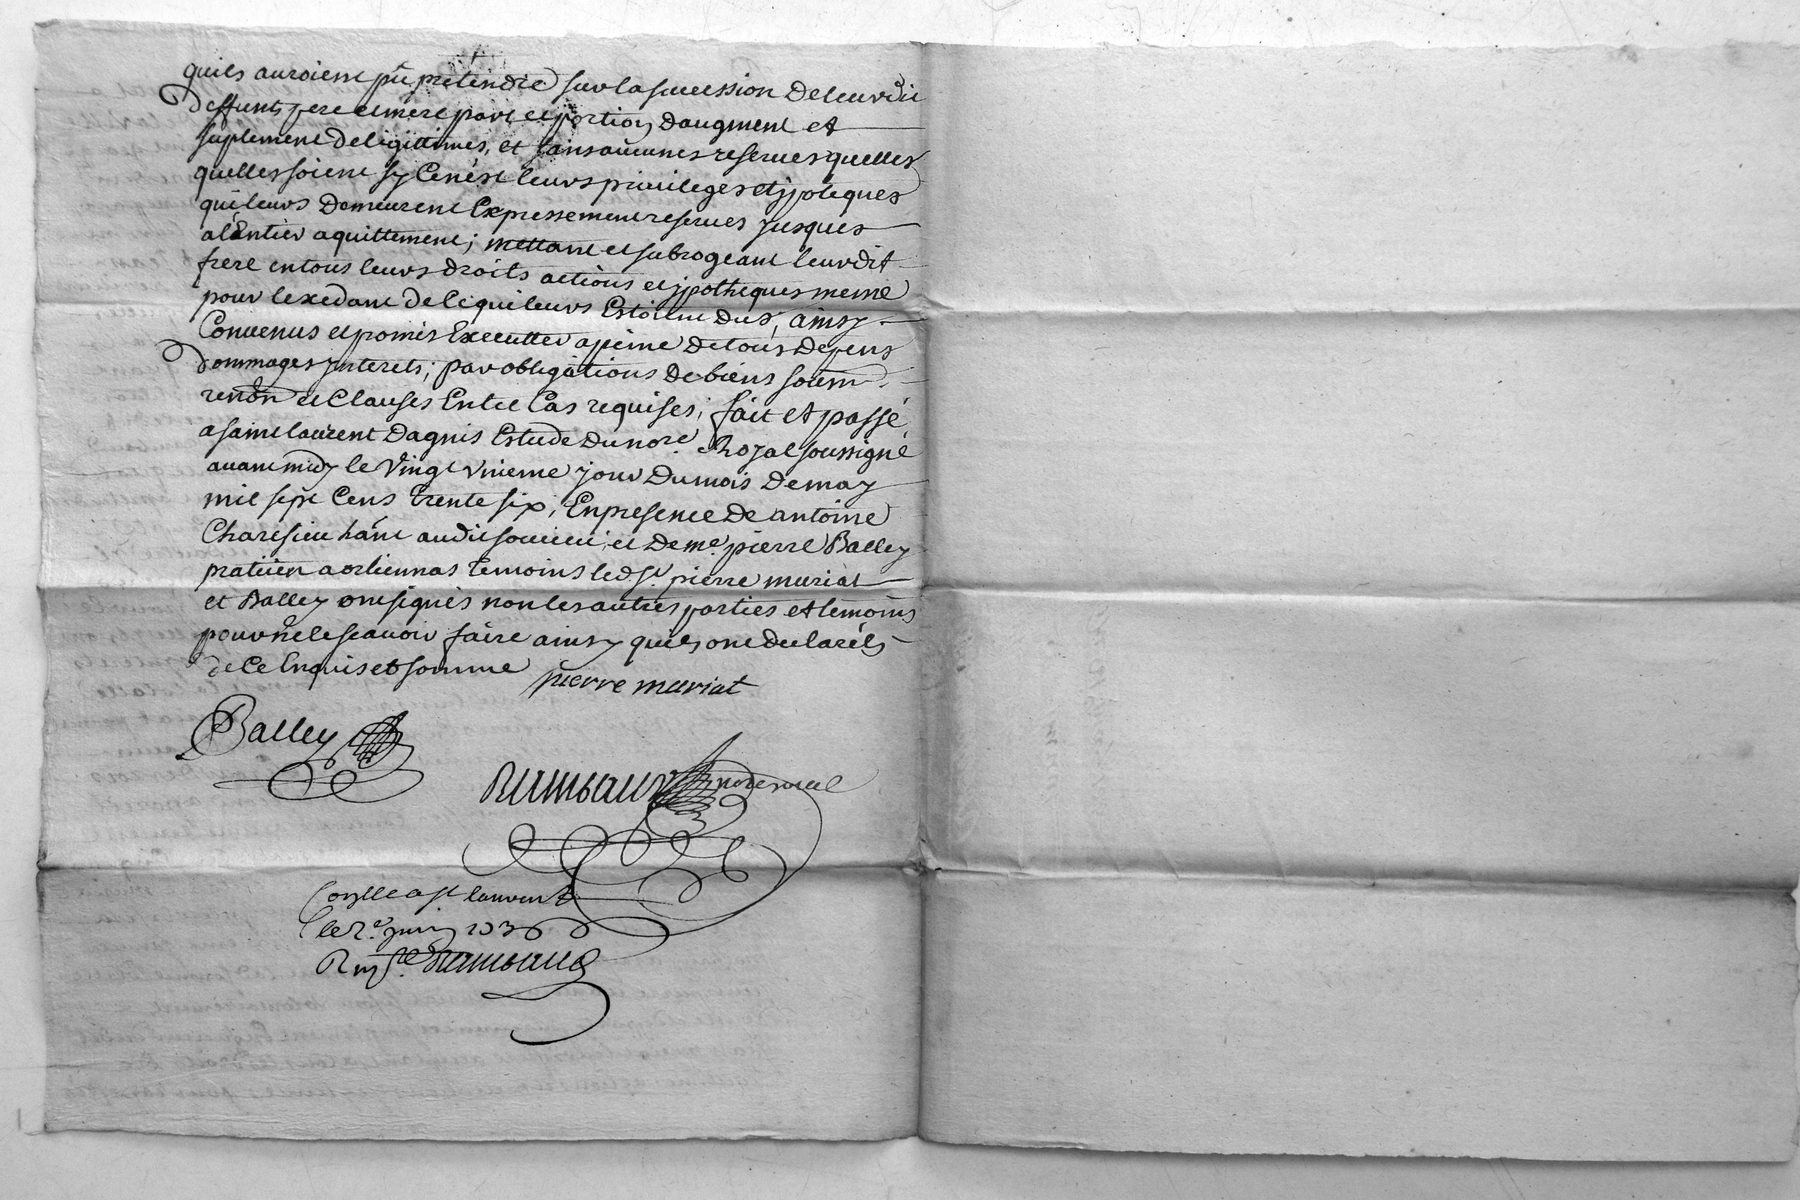 quils auroient pû prétendre sur la succession de leurdit
deffunts pere et mere part et portion daugment et
suplement de legitimes, et sans aucunes reserves quelles
quelles soient sy ce nést leurs privileges et ypoteques
qui leurs demeurent Expressement reserves jusques
a lEntier aquittement; mettant et subrogeant leurdit
frere en tous leurs droits actions et ypotheques meme
pour lexedant de ce qui leurs Estoient dus, ainsy
Convenus et promis Executter a peine de tous depens
dommages ynterets; par obligations de biens soum
renon et Clauses En tel Cas requises; fait et passé
a saint laurent dagnis Estude du nore. Royal soussigné
avant midy le vingt unieme jour du mois de may
mil sept Cens trente six; En presence de antoine
Charesieu hant audit et de me. pierre Balley
praticien a orliennas temoins led sr. pierre muriat
et Balley ont signés non les autres parties et temoins
pour ne le scavoir faire ainsy quils ont declarés
de ce Enquis et somme
pierre muriat
Balley
Rimbaud nore royal
Conlle a st laurent
le 2e. juin 1736